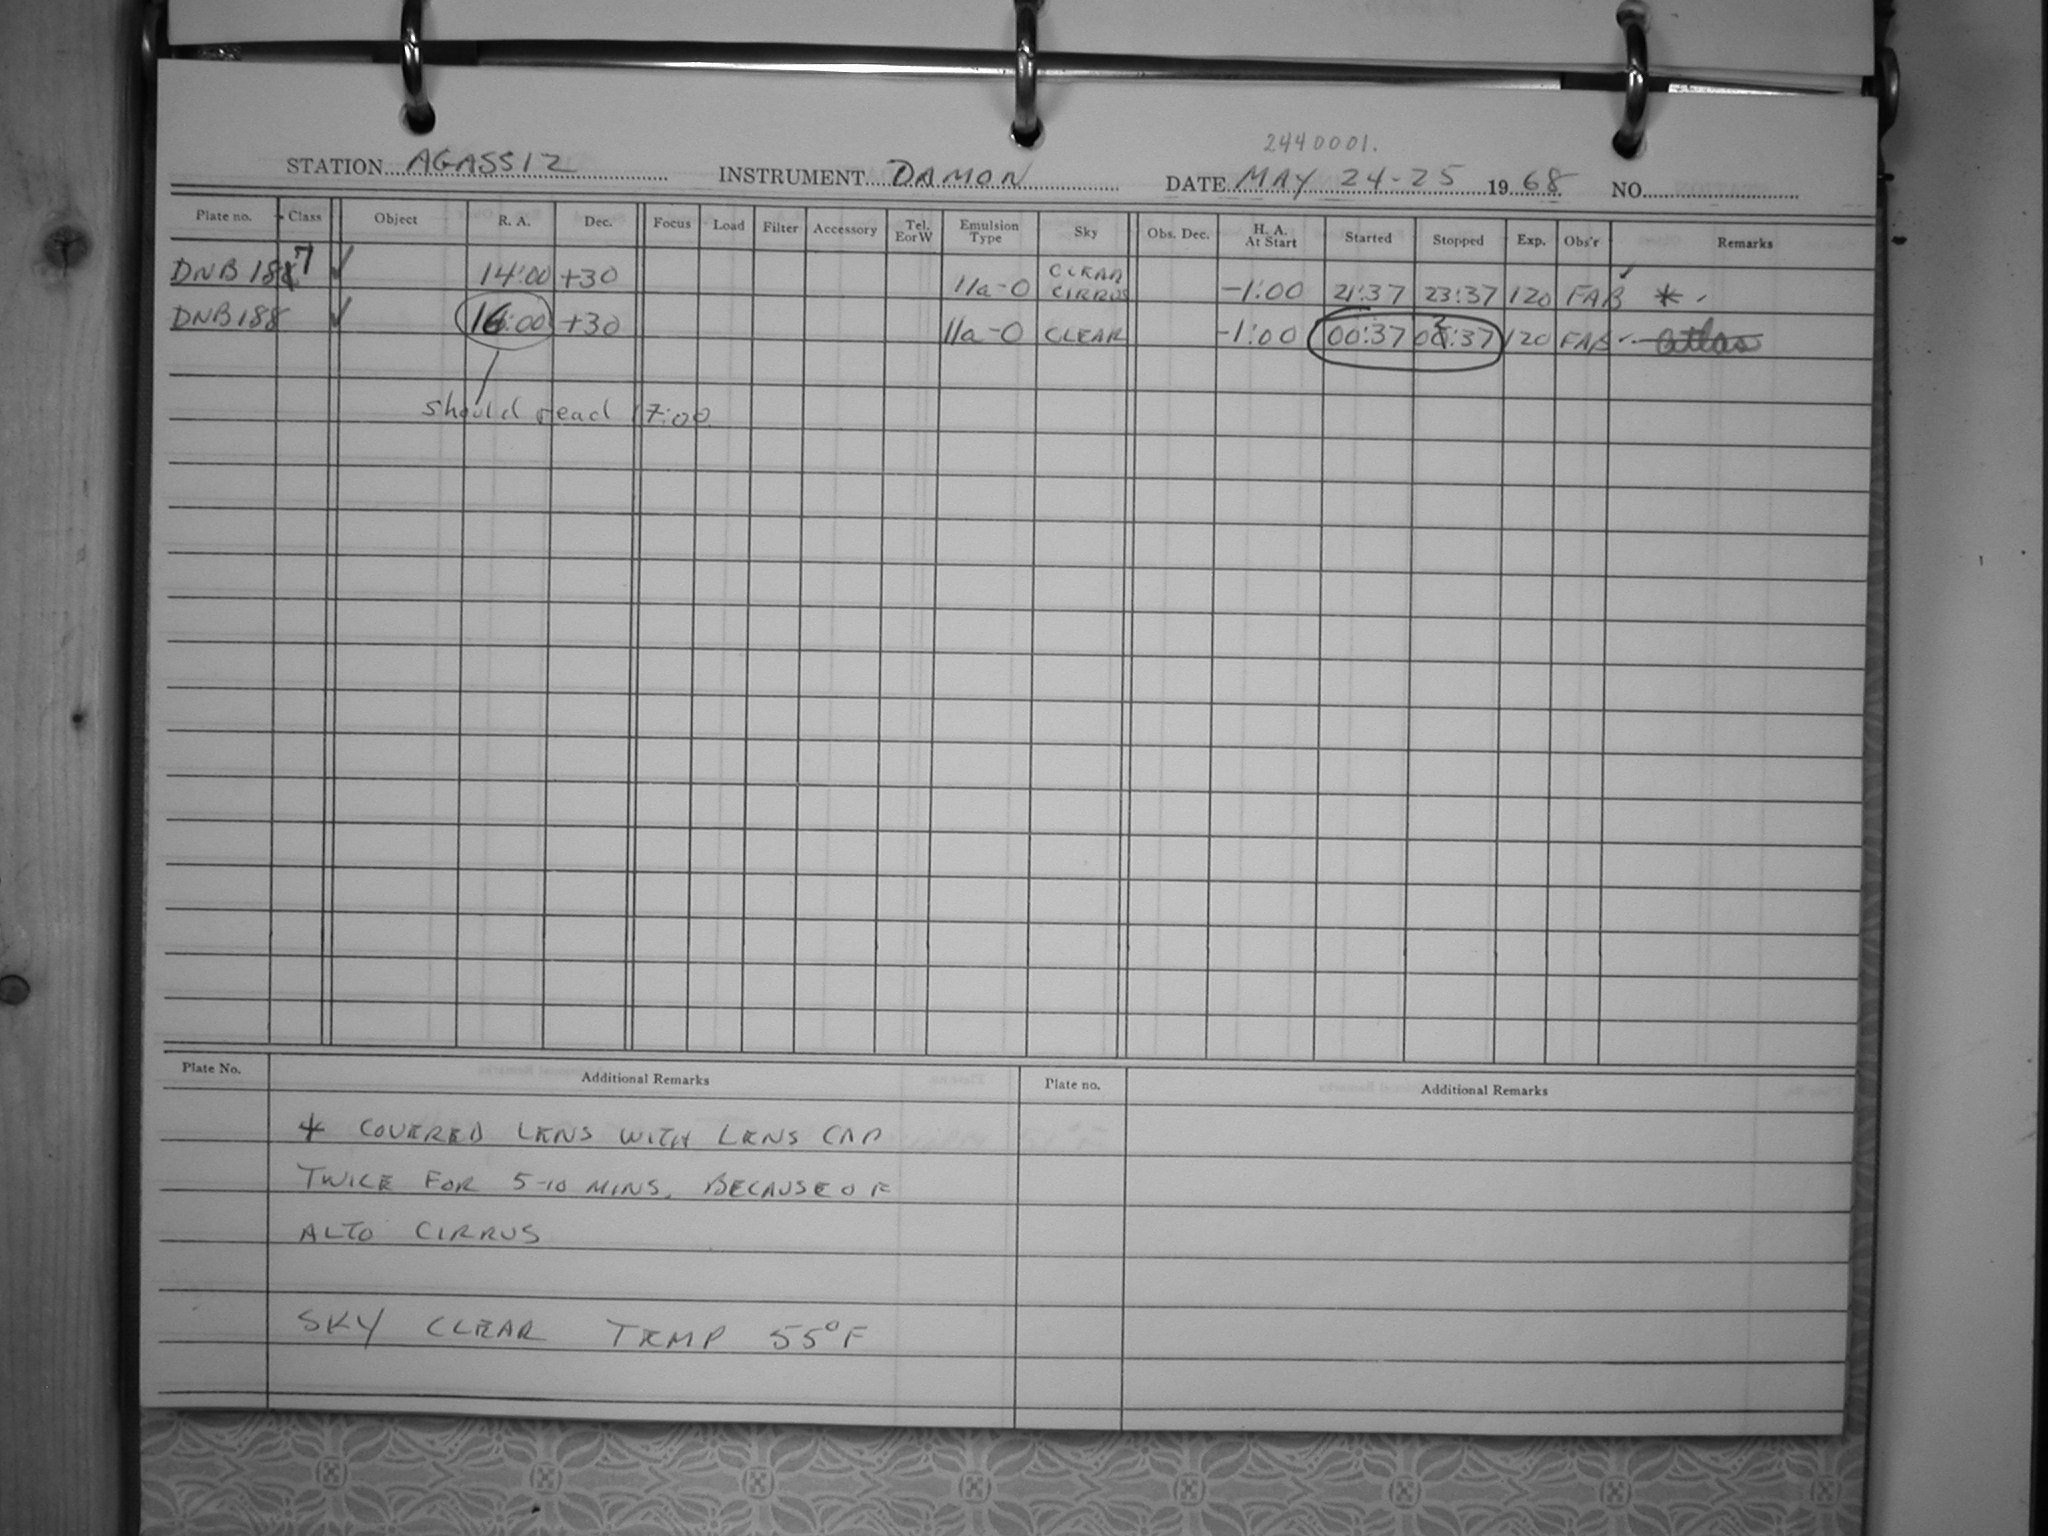 2440001.
STATION AGASSIZ INSTRUMENT DAMON DATE MAY 24-25 1968 NO.
Plate no. Class Object R. A. Dec. Focus Load Filter Accessory Tel. E or W Emulsion Type Sky Obs. Dec. H. A. At Start Started Stopped Exp. Obs'r Remarks
DNB 187 ✓ 14:00 +30 IIa-O CLEAR CIRRUS -1:00 21:37 23:37 120 FAB *
DNB 188 ✓ 16:00 +30 IIa-O CLEAR -1:00 00:37 02:37 120 FAB atlas
should read 17:00
Plate No. Additional Remarks Plate no. Additional Remarks
* COVERED LENS WITH LENS CAP
TWICE FOR 5-10 MINS. BECAUSE OF
ALTO CIRRUS
SKY CLEAR TEMP 55°F